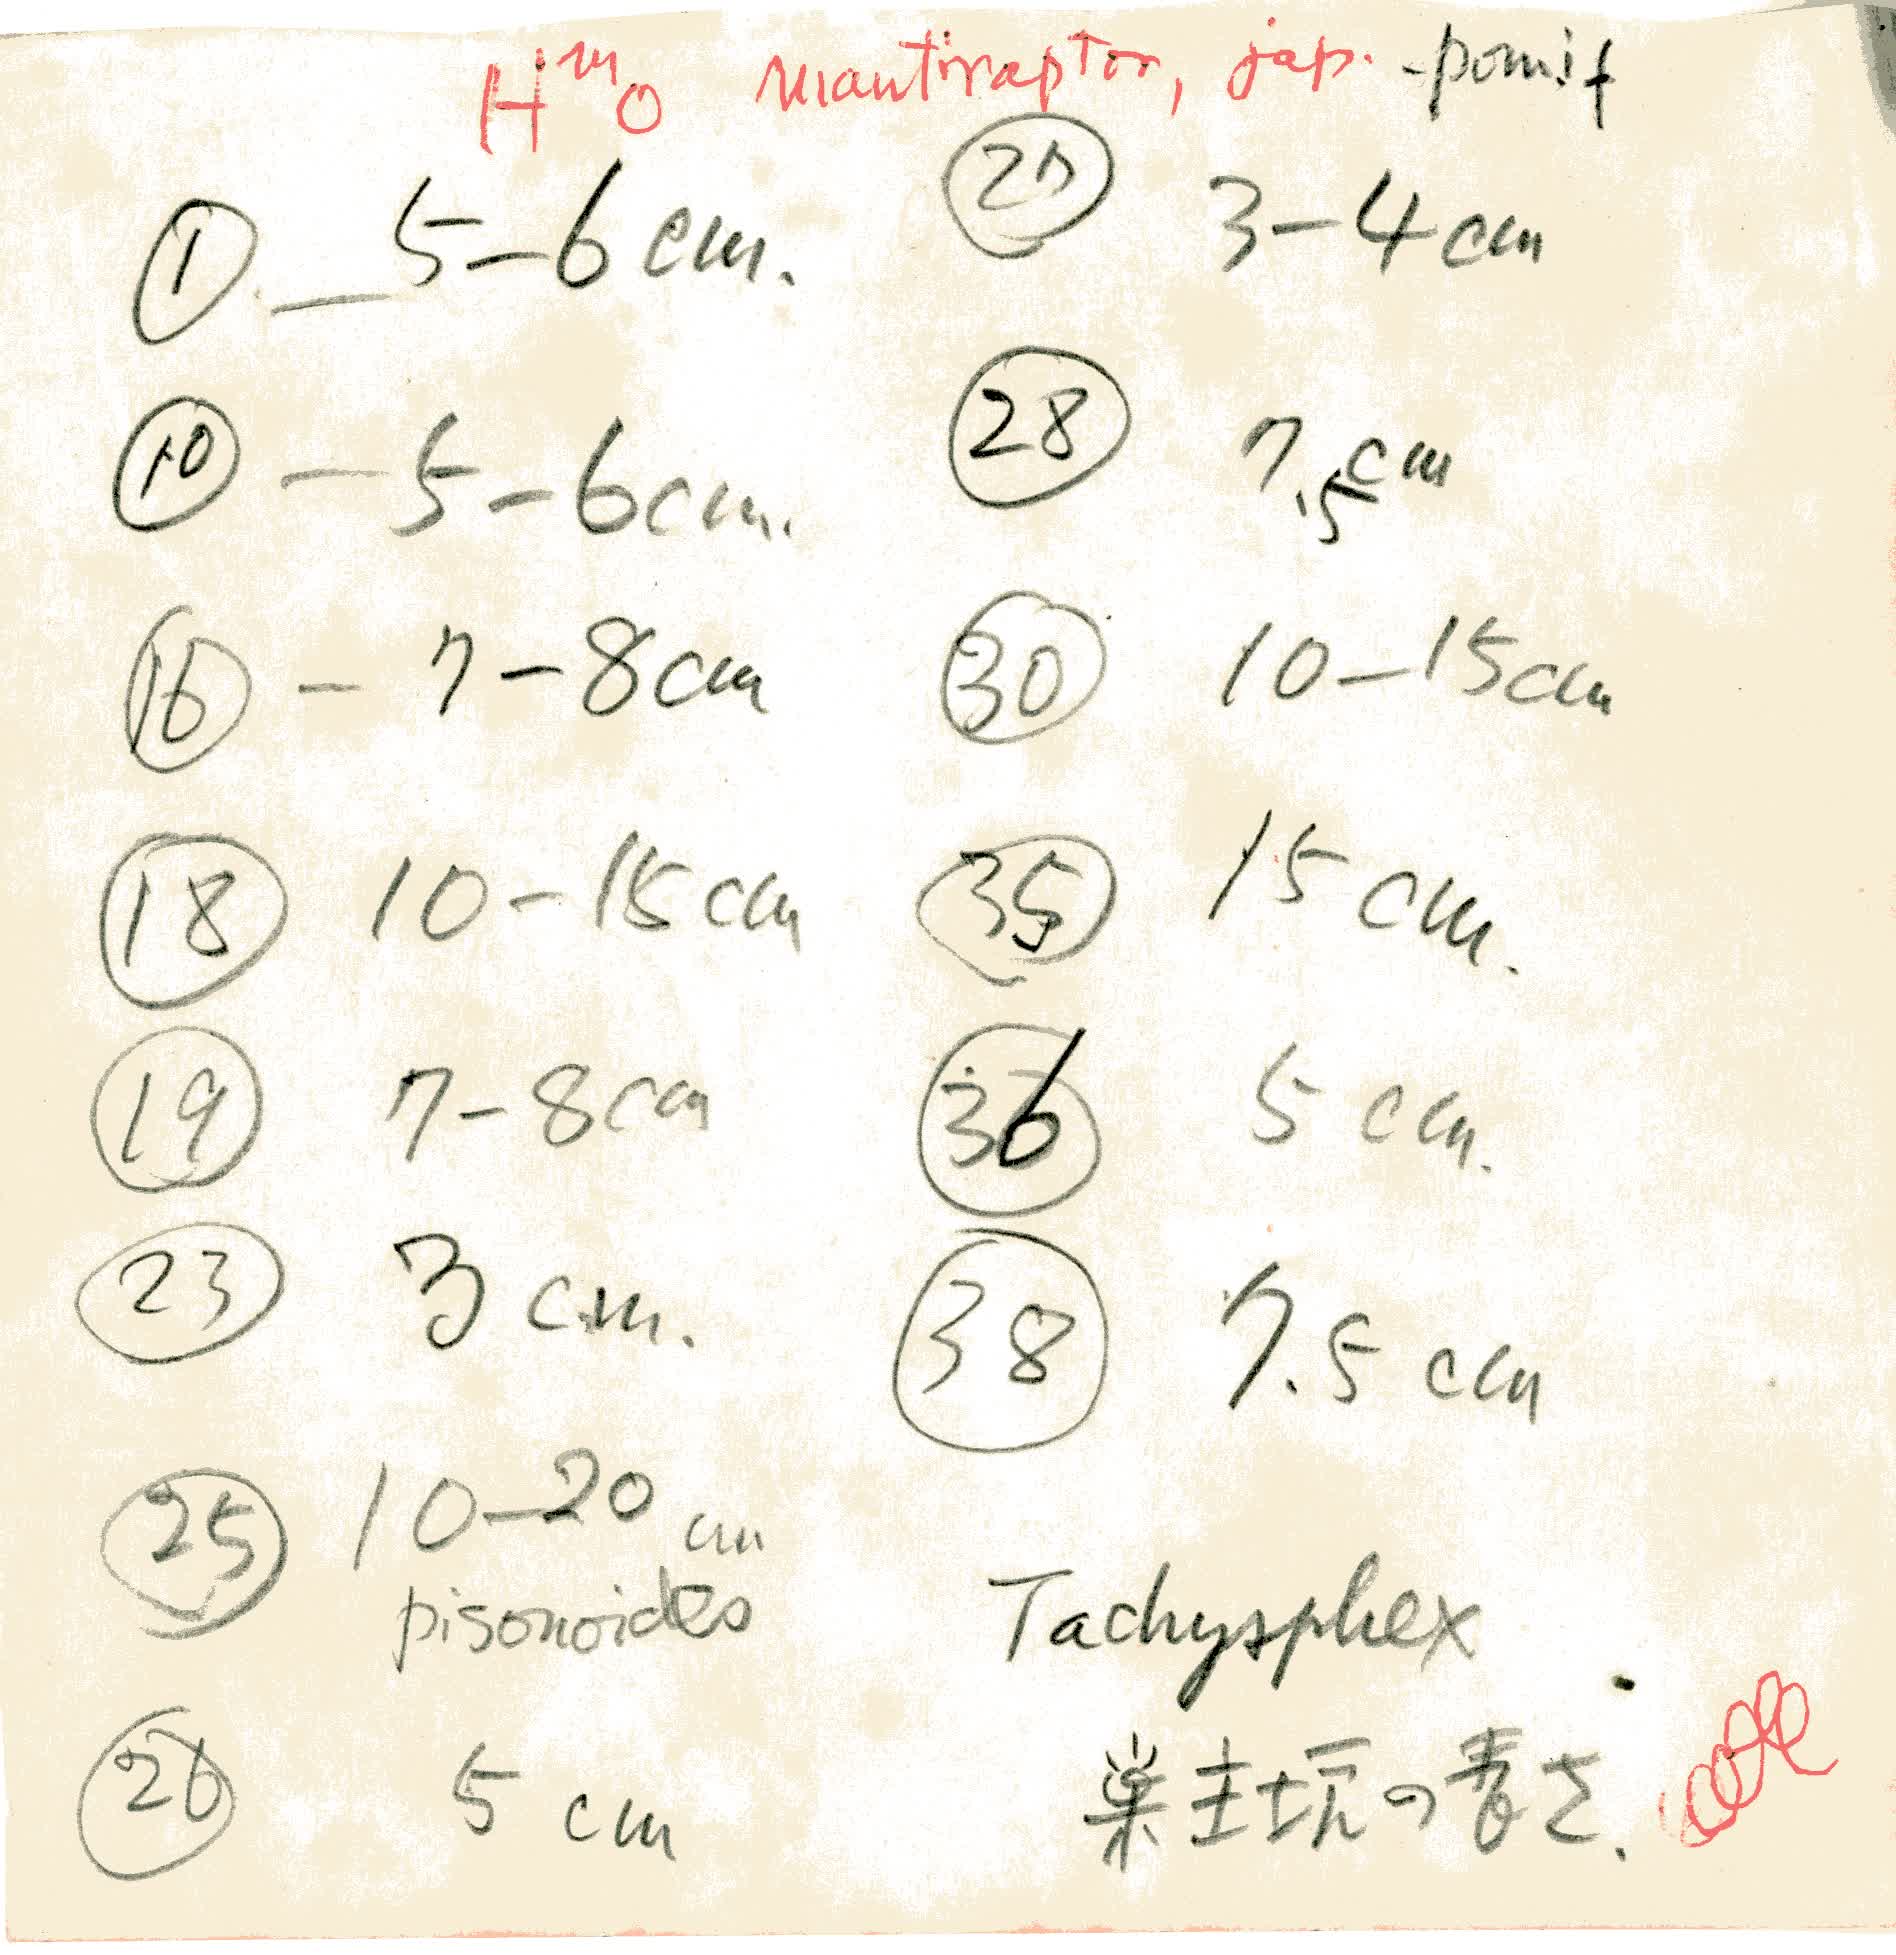 Hᵐo mantiraptor, jap. -pomif
① — 5–6 cm.
⑩ — 5–6 cm.
⑯ – 7–8 cm
⑱ 10–15 cm
⑲ 7–8 cm
㉓ 3 cm.
㉕ 10–20 cm
pisonoides
㉖ 5 cm
㉗ 3–4 cm
㉘ 7.5 cm
㉚ 10–15 cm
㉟ 15 cm.
㊱ 5 cm.
㊳ 7.5 cm
Tachysphex
巣主坑の長さ.